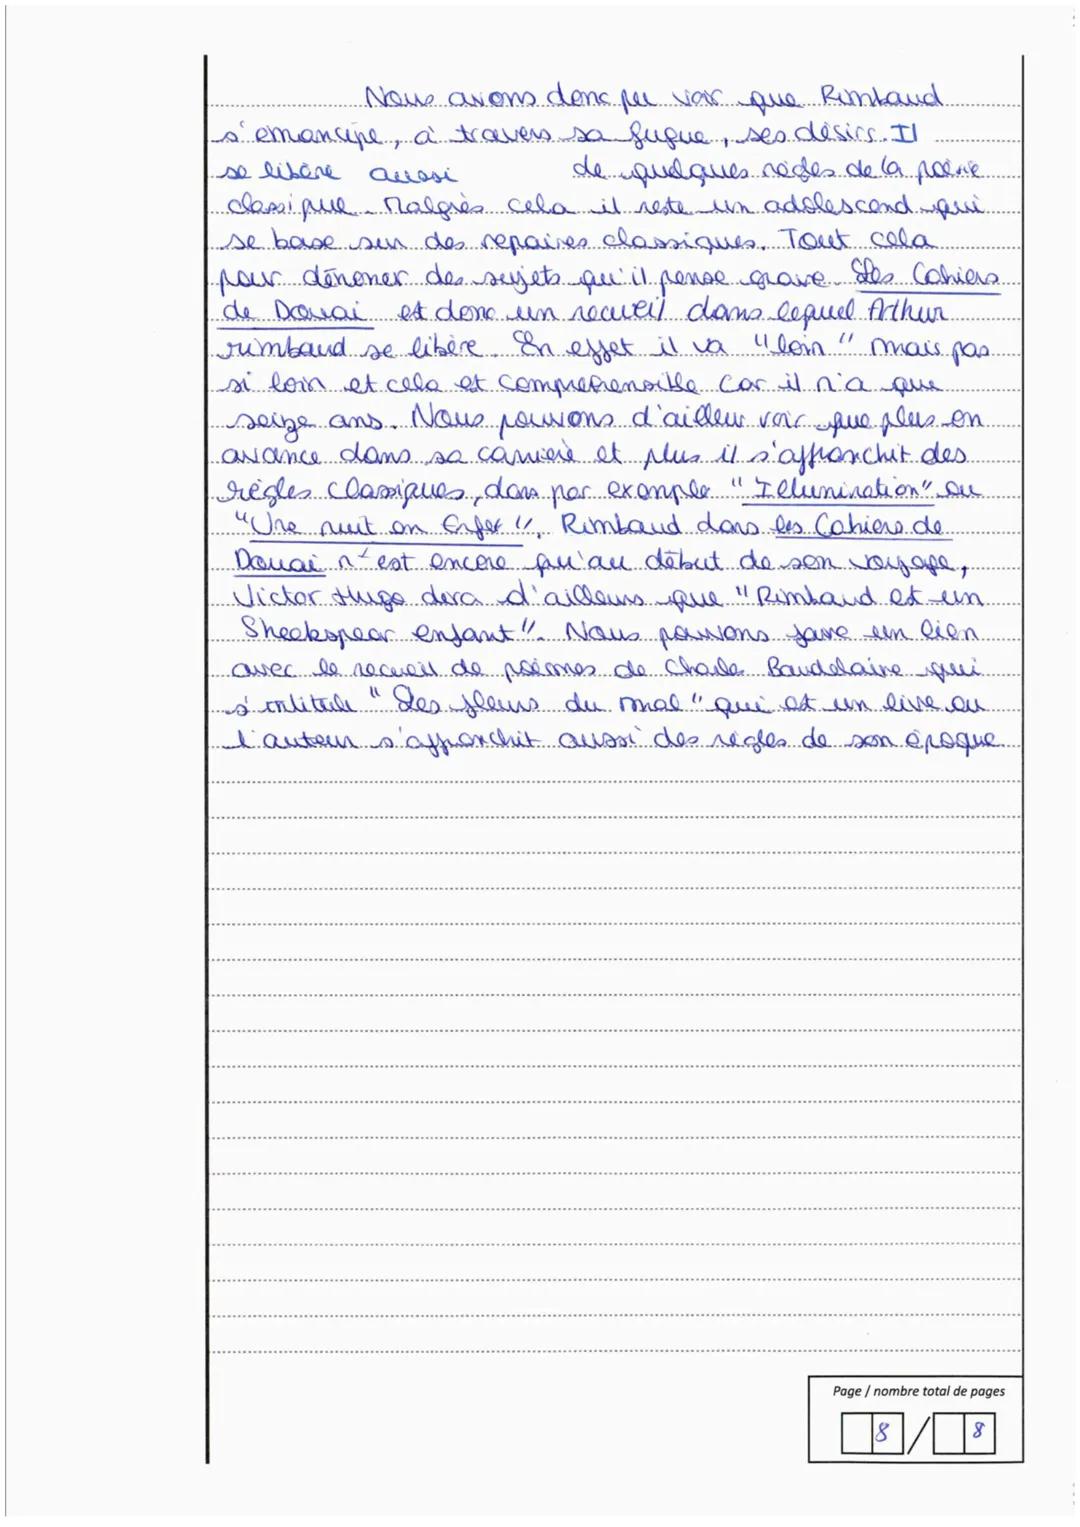 Nous avons donc pu voir que Rimbaud
s'émancipe, à travers sa fugue, ses désirs. Il
se libère aussi de quelques règles de la poésie
classique. Malgrès cela il reste un adolescend qui
se base sur des repaires classiques. Tout cela
pour dénoncer des sujets qu'il pense grave. Les Cahiers
de Douai est donc un recueil dans lequel Arthur
rimbaud se libère. En effet il va "loin" mais pas
si loin et cela et compréhensible car il n'a que
seize ans. Nous pouvons d'ailleur voir que plus on
avance dans sa carrière et plus il s'affranchit des
règles classiques, dans par exemple "Illumination" ou
"Une nuit en Enfer". Rimbaud dans les Cahiers de
Douai n'est encore qu'au début de son voyage,
Victor Hugo dira d'ailleurs que "Rimbaud est un
Sheekspear enfant". Nous pouvons faire un lien
avec le recueil de poèmes de Charles Baudelaire qui
s'intitule "Les fleurs du mal" qui est un livre ou
l'auteur s'affranchit aussi des règles de son époque.
Page / nombre total de pages
8 / 8